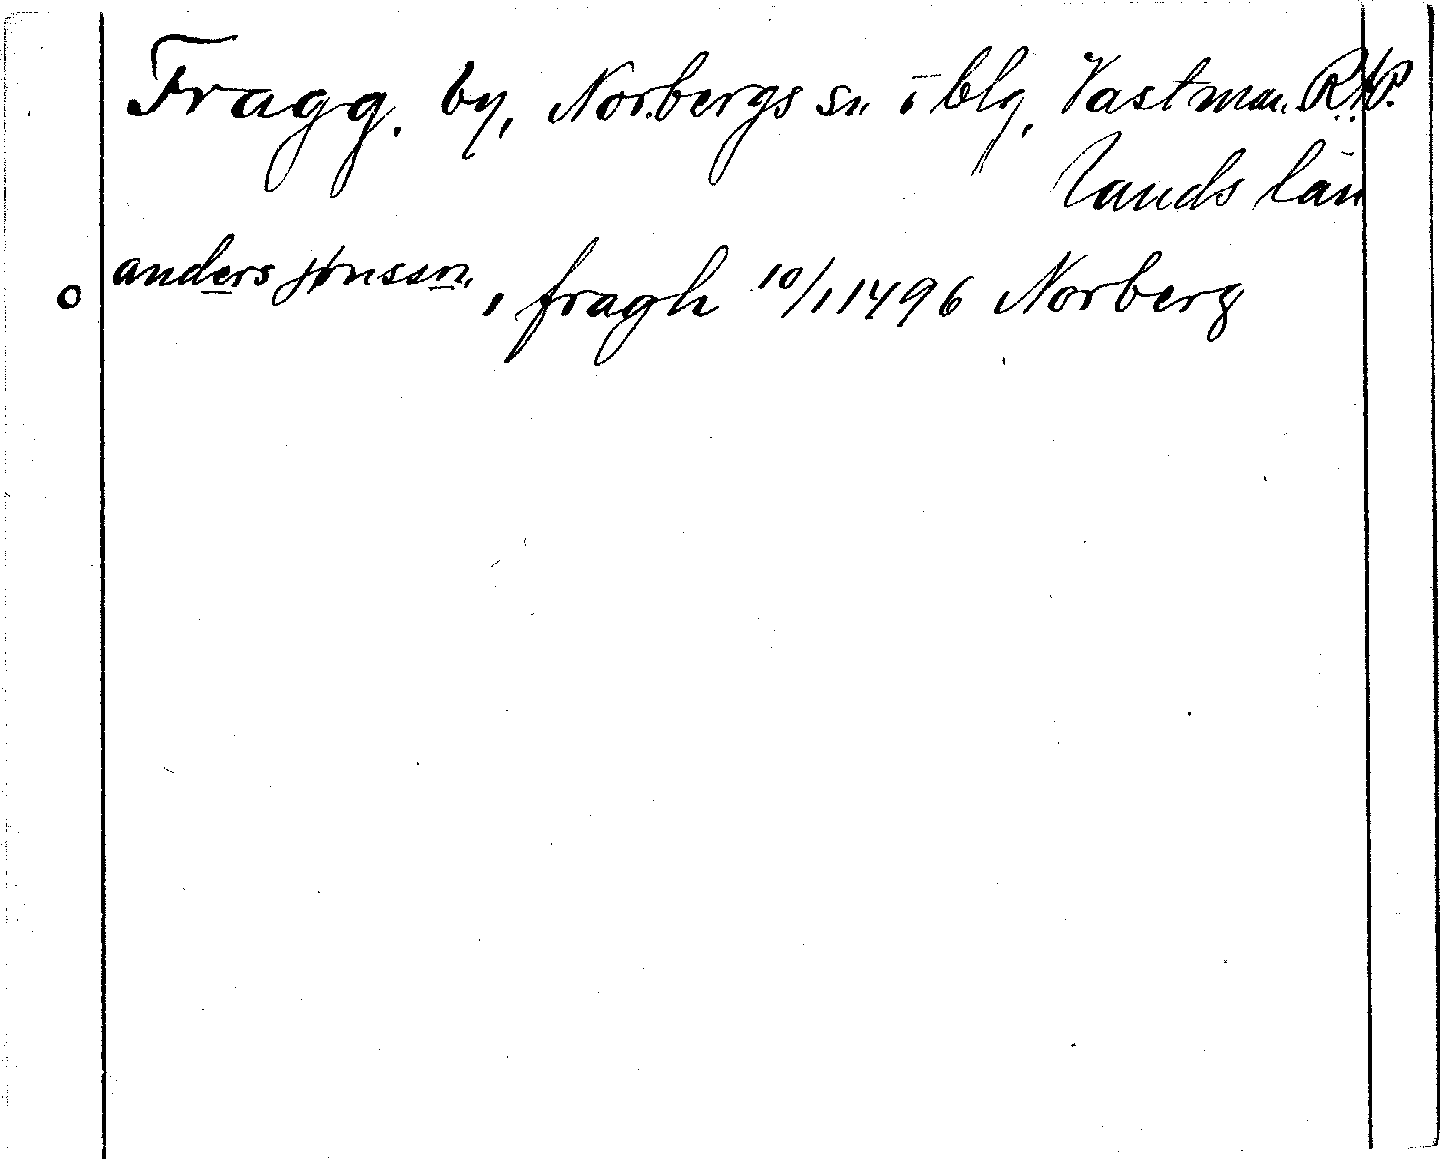 Fragg. by, Norbergs sn o blg, Västman. RAP.
lands län
o anders jønsson, i fragh 10/1 1496 Norberg